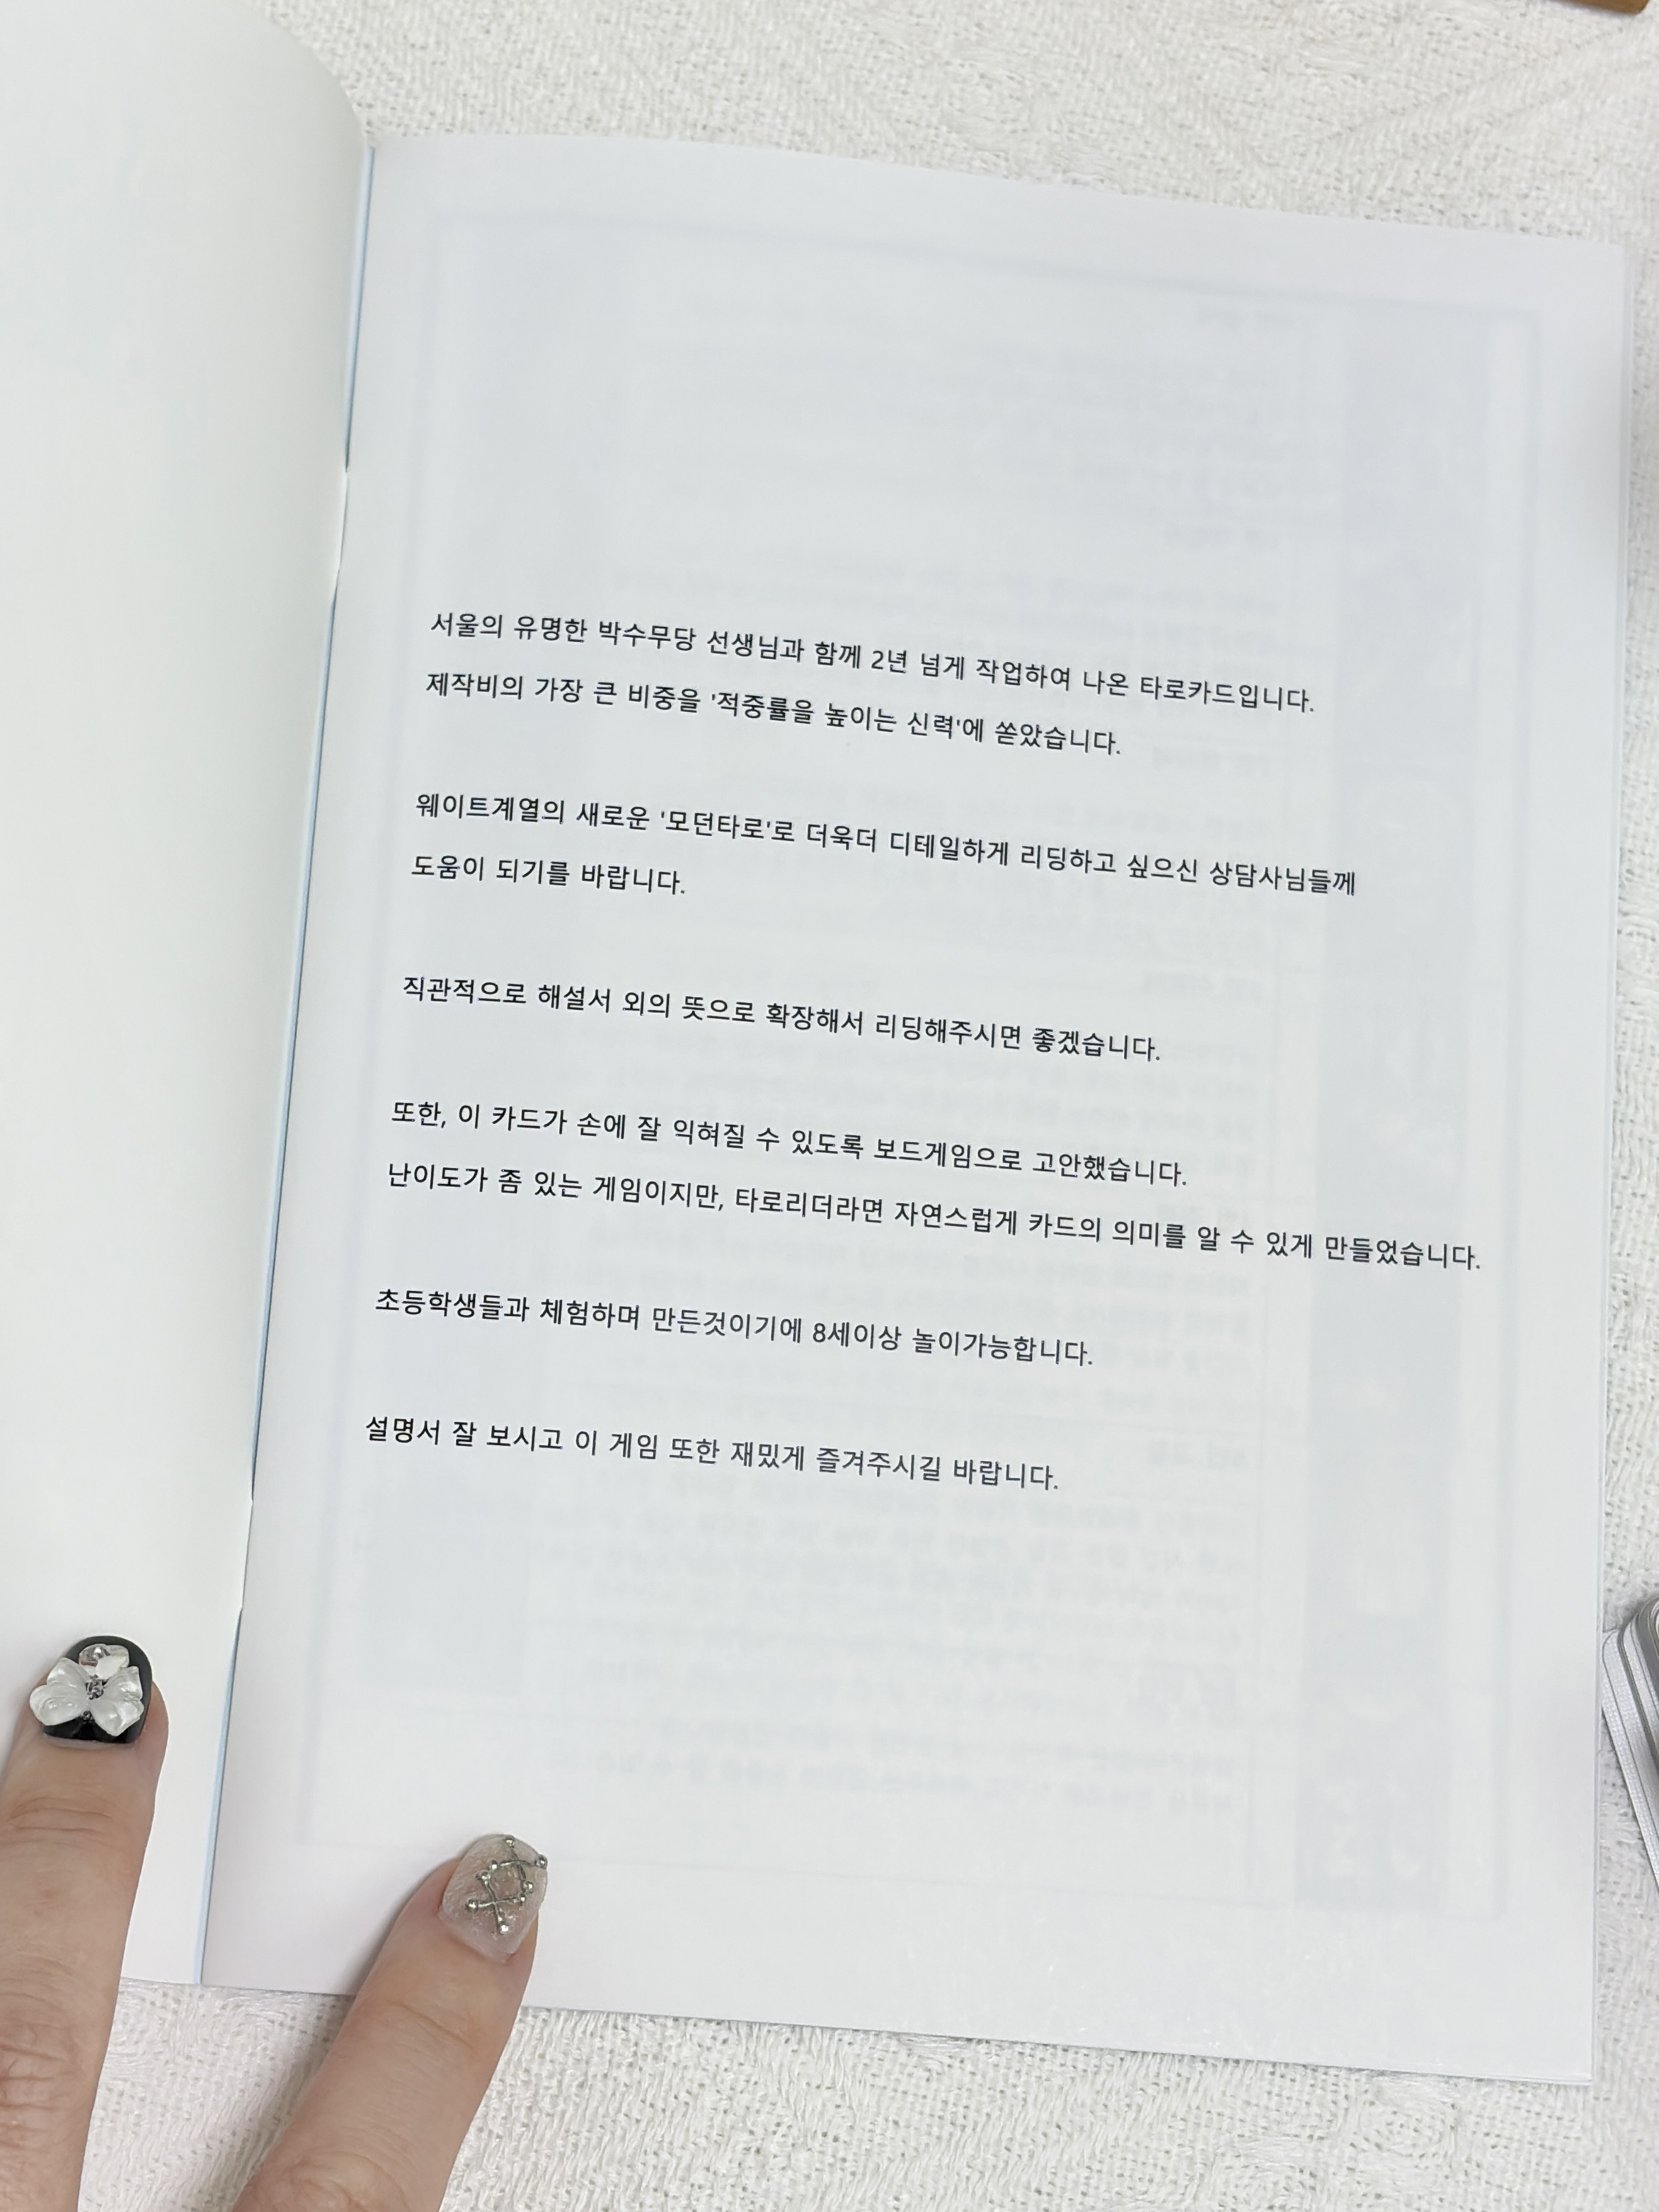 서울의 유명한 박수무당 선생님과 함께 2년 넘게 작업하여 나온 타로카드입니다.
제작비의 가장 큰 비중을 '적중률을 높이는 신력'에 쏟았습니다.
웨이트계열의 새로운 '모던타로'로 더욱더 디테일하게 리딩하고 싶으신 상담사님들께
도움이 되기를 바랍니다.
직관적으로 해설서 외의 뜻으로 확장해서 리딩해주시면 좋겠습니다.
또한, 이 카드가 손에 잘 익혀질 수 있도록 보드게임으로 고안했습니다.
난이도가 좀 있는 게임이지만, 타로리더라면 자연스럽게 카드의 의미를 알 수 있게 만들었습니다.
초등학생들과 체험하며 만든것이기에 8세이상 놀이가능합니다.
설명서 잘 보시고 이 게임 또한 재밌게 즐겨주시길 바랍니다.